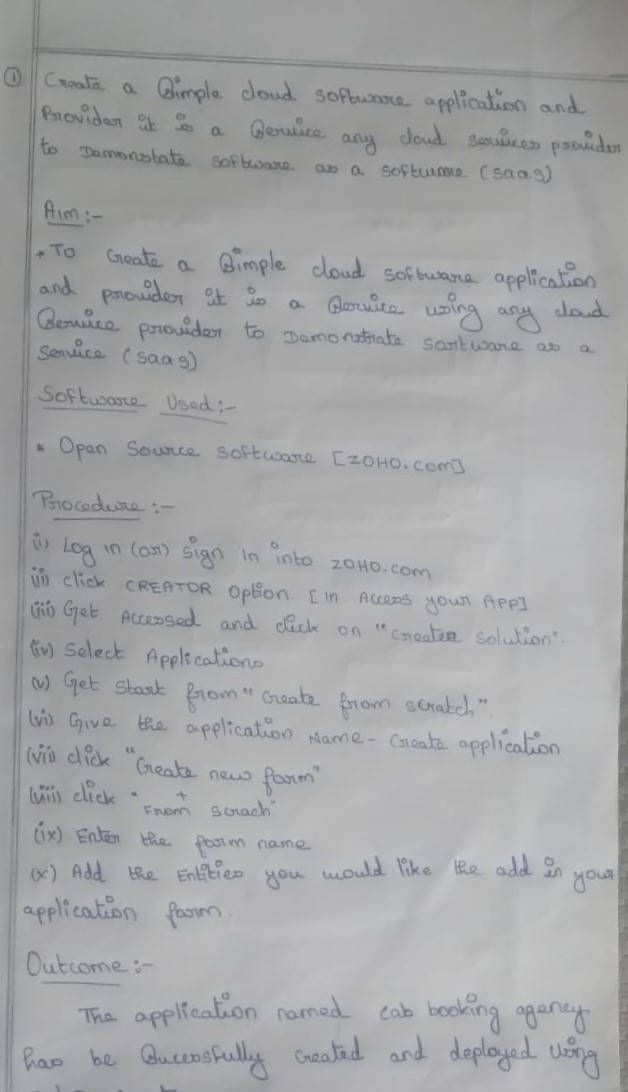 ① Create a Simple cloud software application and
Provider it is a Service any cloud services provider
to Damonstate software as a software (saas)
Aim:-
* To Create a Simple cloud software application
and provider it is a Service using any cloud
Service provider to Damonstrate sortware as a
Service (saas)
Software Used:-
* Open Source software [ZOHO.com]
Procedure:-
(i) Log in (or) sign In into ZOHO.com
(ii) click CREATOR option [In Access your App]
(iii) Get Accessed and click on "creater solution".
(iv) Select Applications
(v) Get Start from "create from scratch".
(vi) Give the application Name - Create application
(vii) click "Create new form"
(viii) click "+ From scrach"
(ix) Enter the form name
(x) Add the Entities you would like the add in your
application form.
Outcome:-
The application named cab booking agency
has be Successfully created and deployed using